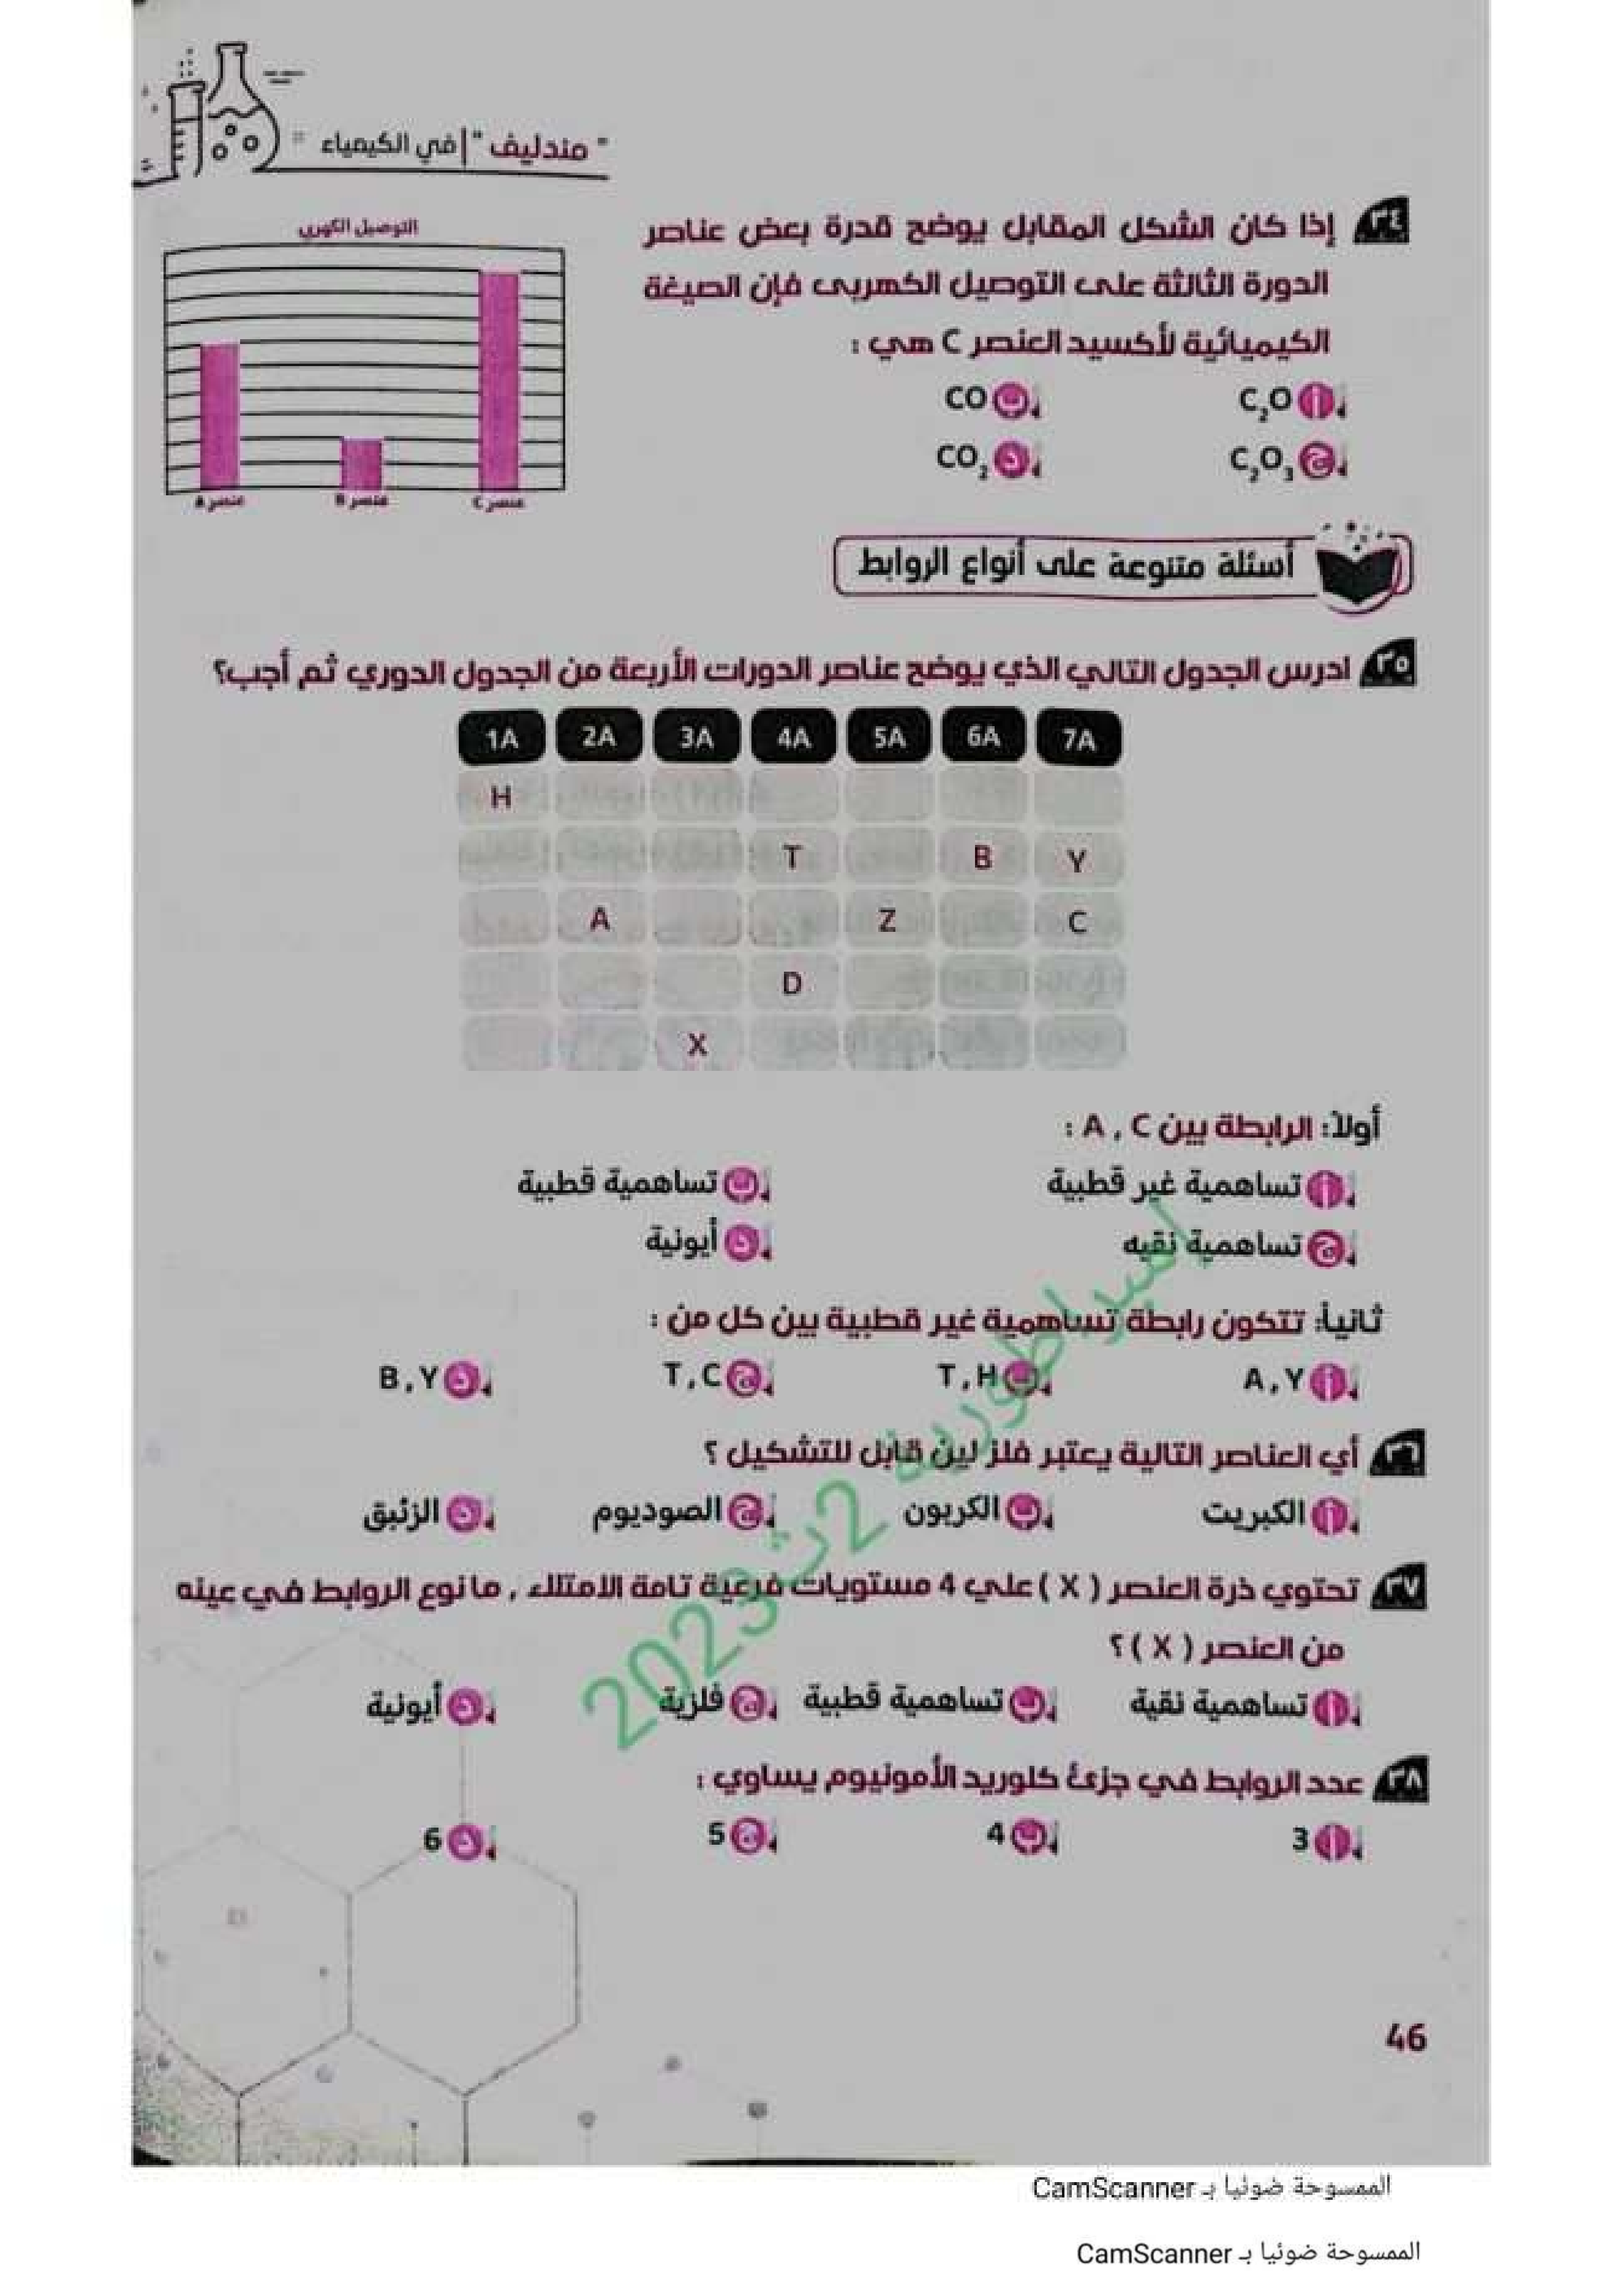 " مندليف " | في الكيمياء
٣٤ إذا كان الشكل المقابل يوضح قدرة بعض عناصر
الدورة الثالثة على التوصيل الكهربى فإن الصيغة
الكيميائية لأكسيد العنصر C هي :
أ C₂O ب CO
ج C₂O₃ د CO₂
التوصيل الكهربي
عنصر A عنصر B عنصر C
أسئلة متنوعة على أنواع الروابط
٣٥ ادرس الجدول التالي الذي يوضح عناصر الدورات الأربعة من الجدول الدوري ثم أجب؟
1A 2A 3A 4A 5A 6A 7A
H
T B Y
A Z C
D
X
أولاً: الرابطة بين A , C :
أ تساهمية غير قطبية ب تساهمية قطبية
ج تساهمية نقيه د أيونية
ثانياً: تتكون رابطة تساهمية غير قطبية بين كل من :
أ A , Y ب T , H ج T , C د B , Y
٣٦ أي العناصر التالية يعتبر فلز لين قابل للتشكيل ؟
أ الكبريت ب الكربون ج الصوديوم د الزئبق
٣٧ تحتوي ذرة العنصر ( X ) علي 4 مستويات فرعية تامة الامتلاء , ما نوع الروابط في عينه
من العنصر ( X ) ؟
أ تساهمية نقية ب تساهمية قطبية ج فلزية د أيونية
٣٨ عدد الروابط في جزئ كلوريد الأمونيوم يساوي :
أ 3 ب 4 ج 5 د 6
إمبراطورية 2ث 2023
46
الممسوحة ضوئيا بـ CamScanner
الممسوحة ضوئيا بـ CamScanner